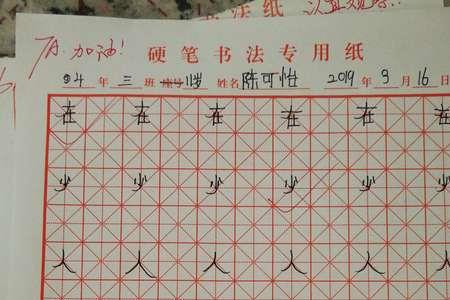 书法纸 认真观察!
7A. 加油!
硬笔书法专用纸
04年三班 座号 11岁 姓名陈可怡 2019年3月16日
在 在 在 在 在 在
少 少 少 少 少 少
人 人 人 人 人 人